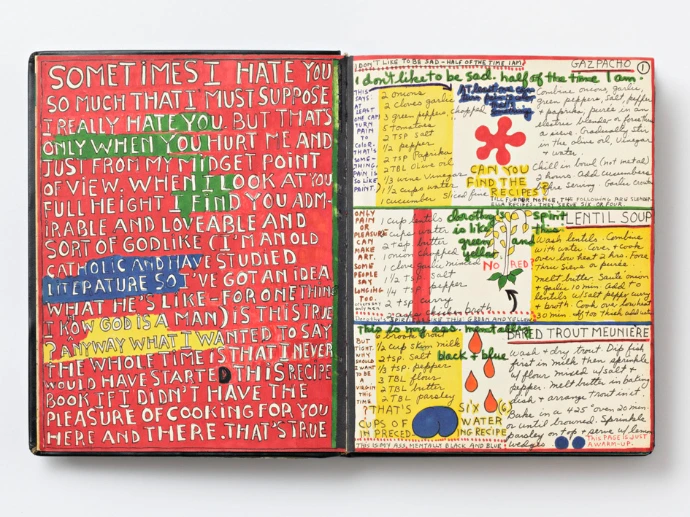 SOMETIMES I HATE YOU
SO MUCH THAT I MUST SUPPOSE
I REALLY HATE YOU. BUT THAT'S
ONLY WHEN YOU HURT ME AND
JUST FROM MY MIDGET POINT
OF VIEW. WHEN I LOOK AT YOU
FULL HEIGHT I FIND YOU ADM-
IRABLE AND LOVEABLE AND
SORT OF GODLIKE (I'M AN OLD
CATHOLIC AND HAVE STUDIED
LITERATURE SO I'VE GOT AN IDEA
WHAT HE'S LIKE-FOR ONE THING
I KNOW GOD IS A MAN) IS THIS TRUE
? ANYWAY WHAT I WANTED TO SAY
THE WHOLE TIME IS THAT I NEVER
WOULD HAVE STARTED THIS RECIPE
BOOK IF I DIDN'T HAVE THE
PLEASURE OF COOKING FOR YOU
HERE AND THERE. THAT'S TRUE
I DON'T LIKE TO BE SAD - HALF OF THE TIME I AM
GAZPACHO
1
I don't like to be sad. half of the time I am.
THIS
SAYS
AT
LEAST
ONE CAN
TURN
PAIN
TO
COLOR.
THAT'S
SOME-
THING.
PAIN IS
SO LIKE
PAINT.
2 onions
2 cloves garlic
3 green peppers, chopped
5 tomatoes
2 tsp salt
1/2 pepper
2 tsp Paprika
2 TBL Olive oil
1/3 wine Vinegar
1 1/2 cups water
1 cucumber sliced fine
CAN YOU
FIND THE
RECIPES?
Combine onions, garlic,
green peppers, salt, pepper
+ paprika, puree in an
electric blender
Gradually stir
in the olive oil, Vinegar
+ water
Chill in bowl (not metal)
2 hours Add cucumbers
before Serving
LENTIL SOUP
ONLY
PAIN
OR
PLEASURE
CAN
MAKE
ART.
SOME
PEOPLE
SAY
LONGING
TOO.
1 cup lentils
6 cups water
2 tsp butter
1 onion chopped
1 clove garlic minced
1 1/2 TSP Salt
1/4 tsp pepper
2 tsp curry
dorothy's
water
is like
green
yellow
spirit
this
and
NO RED
Wash lentils. Combine
with Water. Cover + cook
over low heat 2 hrs. Force
thru sieve or purée.
Melt butter Saute onion
+ garlic 10 min. Add to
lentils w/salt pepper curry
+ broth. Cook over low heat
30 min.
BAKED TROUT MEUNIÈRE
This is my ass. mentally
black + blue
BUT
THAT
WHY
SHOULD
I WANT
TO BE
A
VIRGIN
THIS
TIME
6 brook trout
1/2 cup skim milk
2 tsp. Salt
1/2 tsp. pepper
3 TBL flour
2 TBL butter
2 TBL parsley
? THAT'S
SIX (6)
CUPS OF
WATER
IN PRECED
ING RECIPE
Wash + dry trout. Dip fish
first in milk then sprinkle
w/ flour mixed w/salt +
pepper. Melt butter in baking
dish + arrange trout in it.
Bake in a 425° oven 20 min
or until browned. Sprinkle
parsley on top + serve w/ lemon
wedges
THIS PAGE IS JUST
A WARM-UP.
THIS IS MY ASS, MENTALLY BLACK AND BLUE